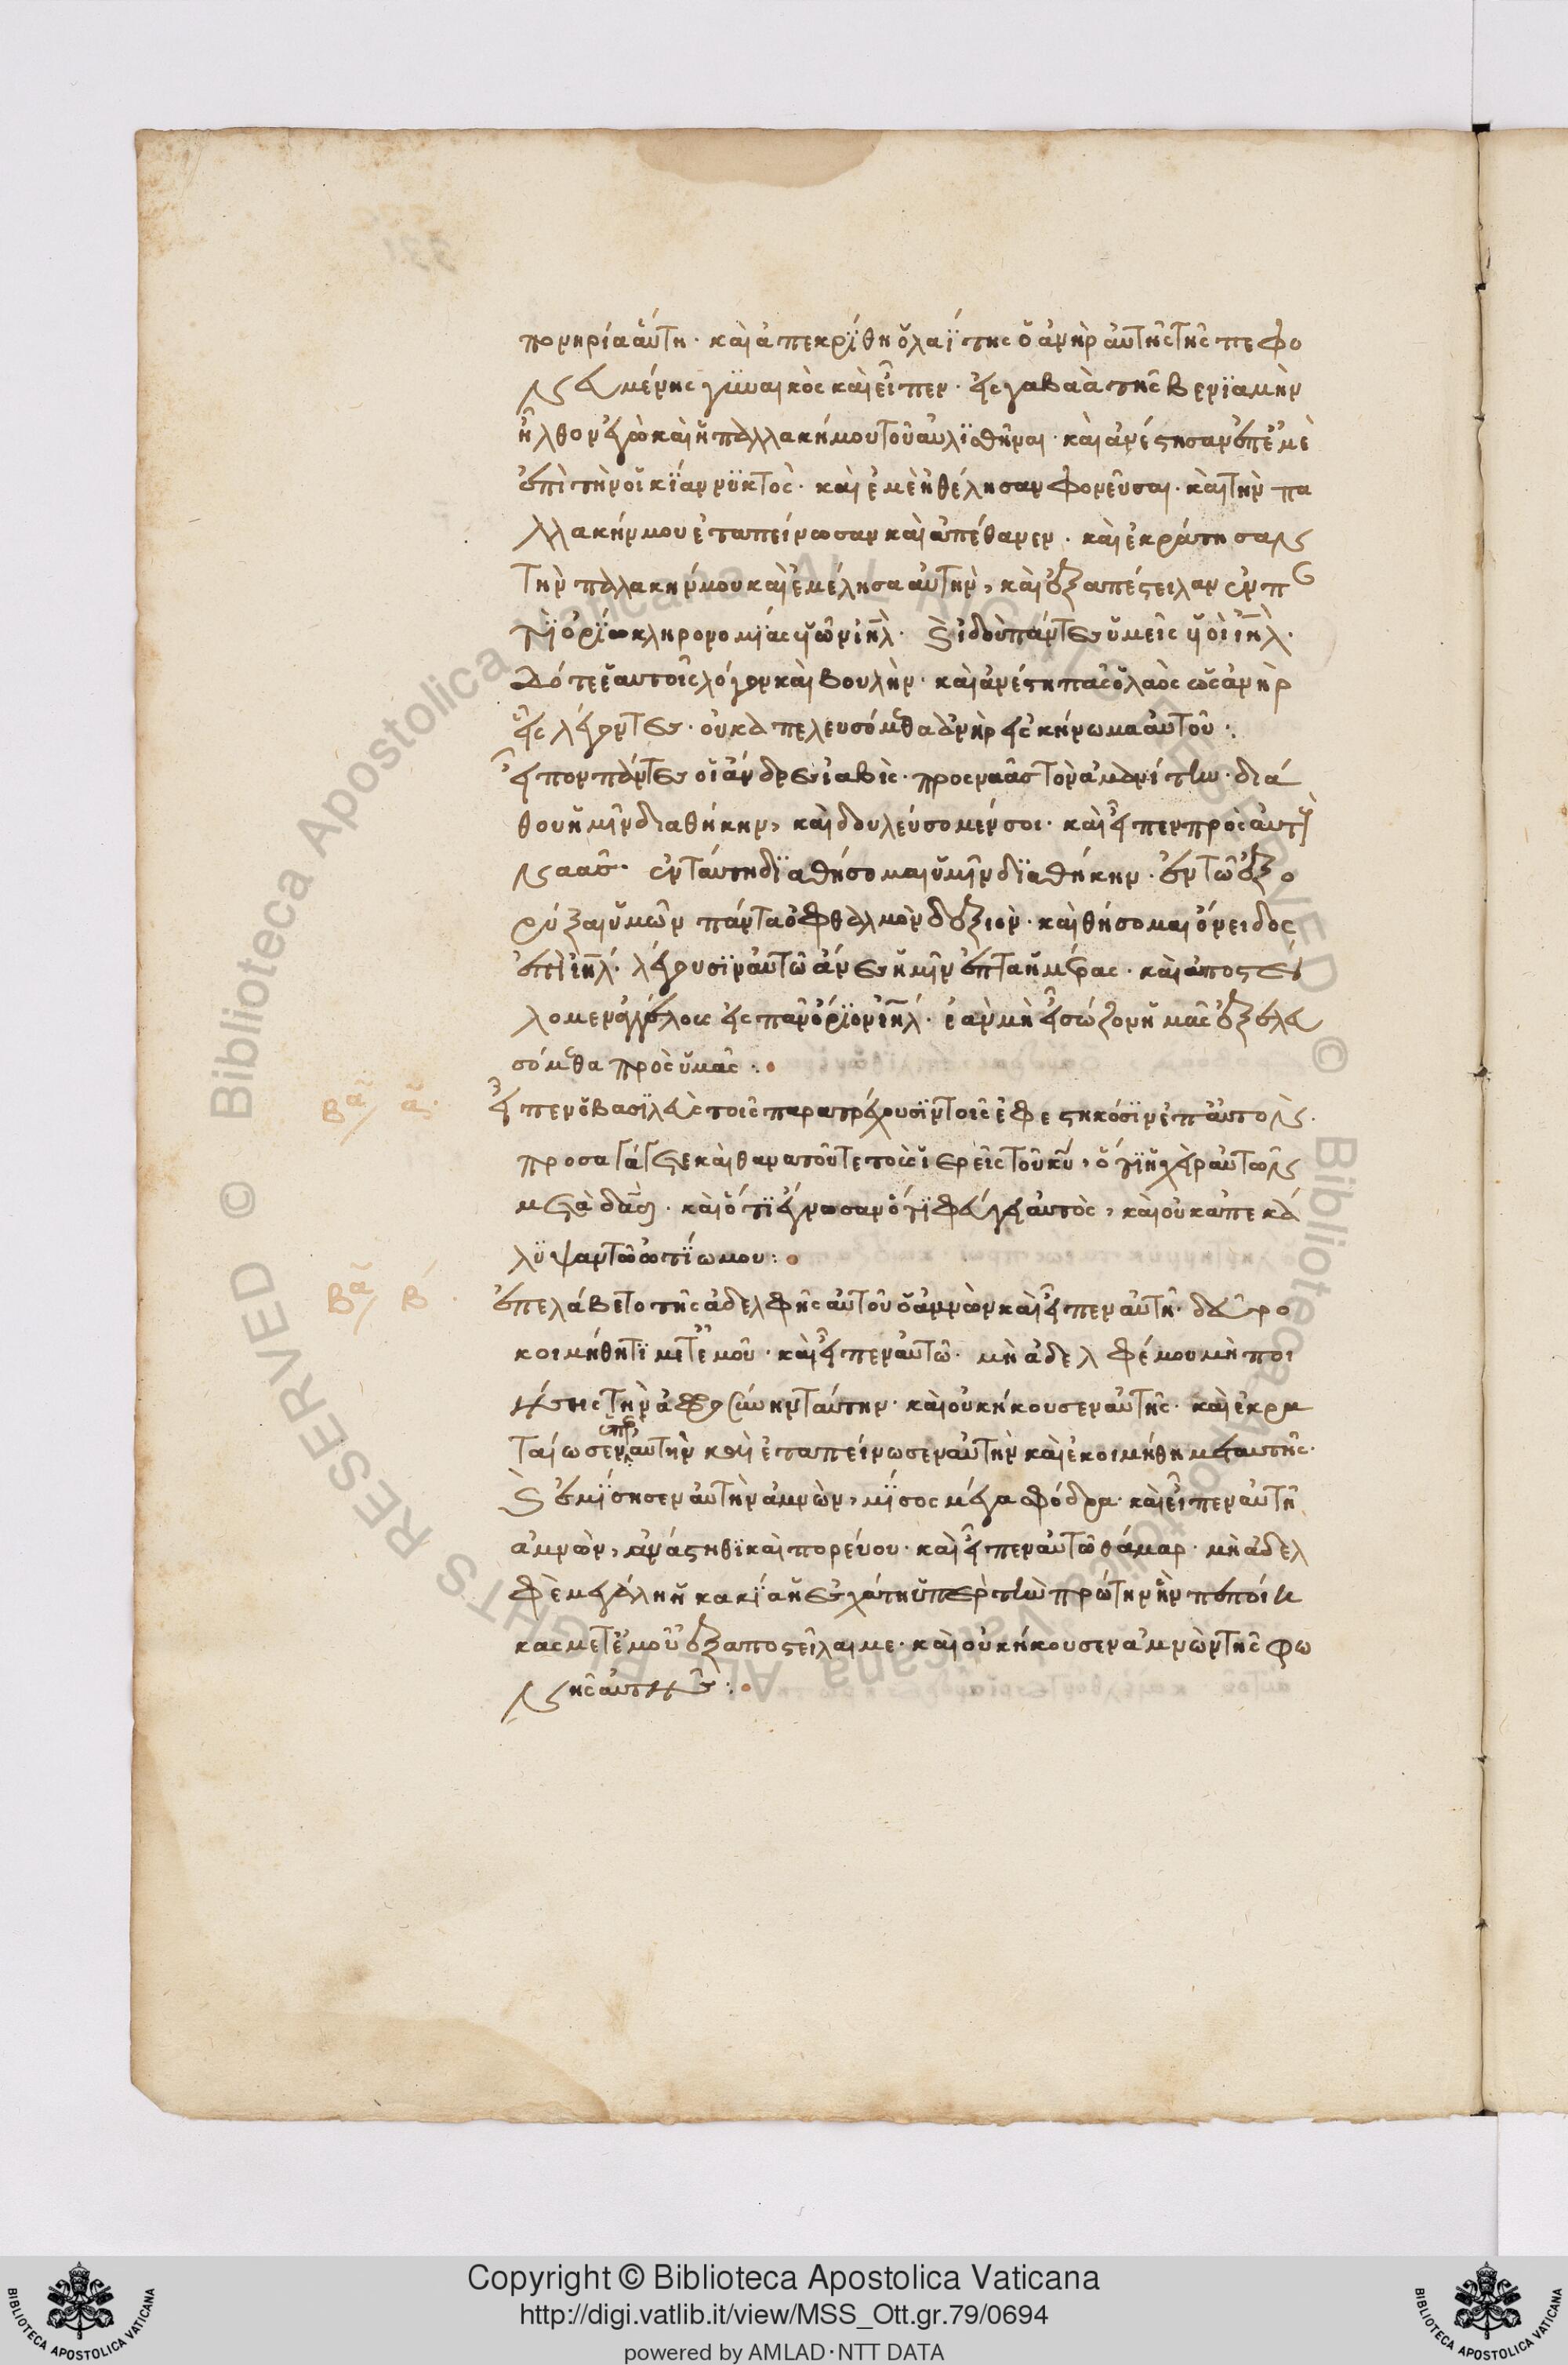 πονηρία αὕτη· καὶ ἀπεκρίθη ὁ λαΐτης ὁ ἀνὴρ αὐτῆς τῆς πεφο
νευμένης γυναικὸς καὶ εἶπεν· εἰς γαβαὰ τῆς βενϊαμὴν
ἦλθον ἐγὼ καὶ ἡ παλλακή μου τοῦ αὐλϊσθῆναι· καὶ ἀνέστησαν ἐπ' ἐμὲ
ἐπὶ τὴν οἰκϊαν νϋκτὸς· καὶ ἐμὲ ἠθέλησαν φονεῦσαι· καὶ τὴν πα
λλακήν μου ἐταπείνωσαν καὶ ἀπέθανεν· καὶ ἐκράτησαν
τὴν παλακήν μου καὶ ἐμέλησα αὐτὴν, καὶ ἐξαπέστειλαν ἐν π
τὶ ὁρίω κληρονομίας υἱῶν ιηλ· καὶ ἰδοὺ πάντες ὑμεῖς υἱοὶ ιηλ·
δότε ἑαυτοῖς λόγον καὶ βουλὴν· καὶ ἀνέστη πᾶς ὁ λαὸς ὡς ἀνὴρ
εἷς λέγοντες· οὐκ ἀπελευσόμεθα ἀνὴρ εἰς σκήνωμα αὐτοῦ·
εἶπον πάντες οἱ ἄνδρες ιαβὶς· πρὸς ναᾶς τὸν ἀμανίτην· διά
θου ἡμῖν διαθήκην, καὶ δουλεύσομέν σοι· καὶ εἶπεν πρὸς αὐτοὺς
ναᾶσ· ἐν ταύτη διαθήσομαι ὑμῖν διαθήκην· ἐν τῶ ἐξο
ρύξαι ὑμῶν πάντα ὀφθαλμὸν δεξιὸν· καὶ θήσομαι ὄνειδος
ἐπὶ ιηλ· λέγουσϊν αὐτῶ ἄνες ἡμῖν ἑπτὰ ἡμέρας· καὶ ἀποστε
λομεν ἀγγέλους εἰς πᾶν ὅριον ιηλ· ἐὰν μὴ εἶ σώζον ἡμᾶς ἐξελευ
σόμεθα πρὸς ὑμᾶς:·
Βασ α· εἶπεν ὁ βασιλεὺς τοῖς παρατρέχουσϊν τοῖς ἐφεστηκόσϊν ἐπ' αὐτον·
προσαγάγετε καὶ θανατοῦτε τοὺς ἱερεῖς τοῦ κυ, ὅτι ἡ χὲρ αὐτῶν
μετὰ δαδ· καὶ ὅτι ἔγνωσαν ὅτι φεύγει αὐτὸς, καὶ οὐκ ἀπεκά
λυψαν τῶ ὠτίω μου:·
Βασ β· ἐπελάβετο τῆς ἀδελφῆς αὐτοῦ ὁ ἀμνὼν καὶ εἶπεν αὐτῆ· δεῦρο
κοιμήθητϊ μετ' ἐμοῦ· καὶ εἶπεν αὐτῶ· μὴ ἀδελφέ μου μὴ ποι
ήσης τὴν ἀφροσύνην ταύτην· καὶ οὐκ ἤκουσεν αὐτῆς· καὶ ἐκρα
ταίωσεν ὑπὲρ αὐτὴν καὶ ἐταπείνωσεν αὐτὴν καὶ ἐκοιμήθη μετ' αυτῆς·
καὶ ἐμΐσησεν αὐτὴν ἀμνὼν, μῖσος μέγα φόδρα· καὶ εἶπεν αὐτῆ
ἀμνὼν, ἀνάστηθι καὶ πορεύου· καὶ εἶπεν αὐτῶ θάμαρ· μὴ ἀδελ
φὲ μεγάλη ἡ κακία ἡ ἐσχάτη ὑπὲρ τὴν πρώτην ἣν πεποίη
κας μετ' ἐμοῦ ἐξαποστεῖλαι με· καὶ οὐκ ἤκουσεν ἀμνὼν τῆς φω
νῆς αὐτῆς:·
Copyright © Biblioteca Apostolica Vaticana
http://digi.vatlib.it/view/MSS_Ott.gr.79/0694
powered by AMLAD·NTT DATA
© Biblioteca Apostolica Vaticana ALL RIGHTS RESERVED
© Biblioteca Apostolica Vaticana ALL RIGHTS RESERVED
BIBLIOTECA APOSTOLICA VATICANA
BIBLIOTECA APOSTOLICA VATICANA